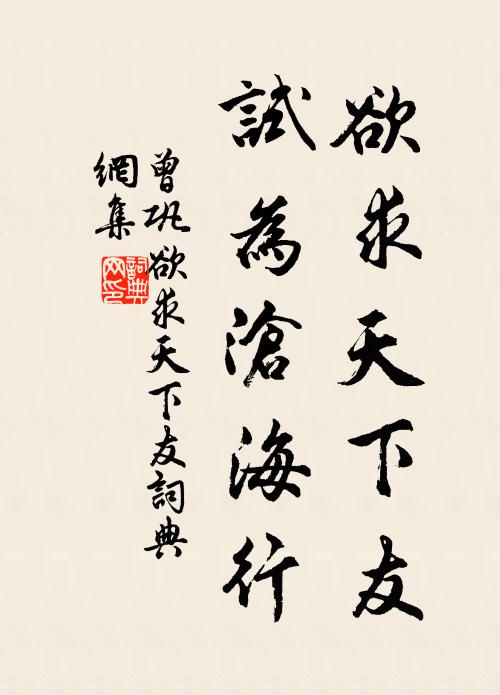 欲求天下友
試為滄海行
曾巩欲求天下友詞典
網集
詞典
网印